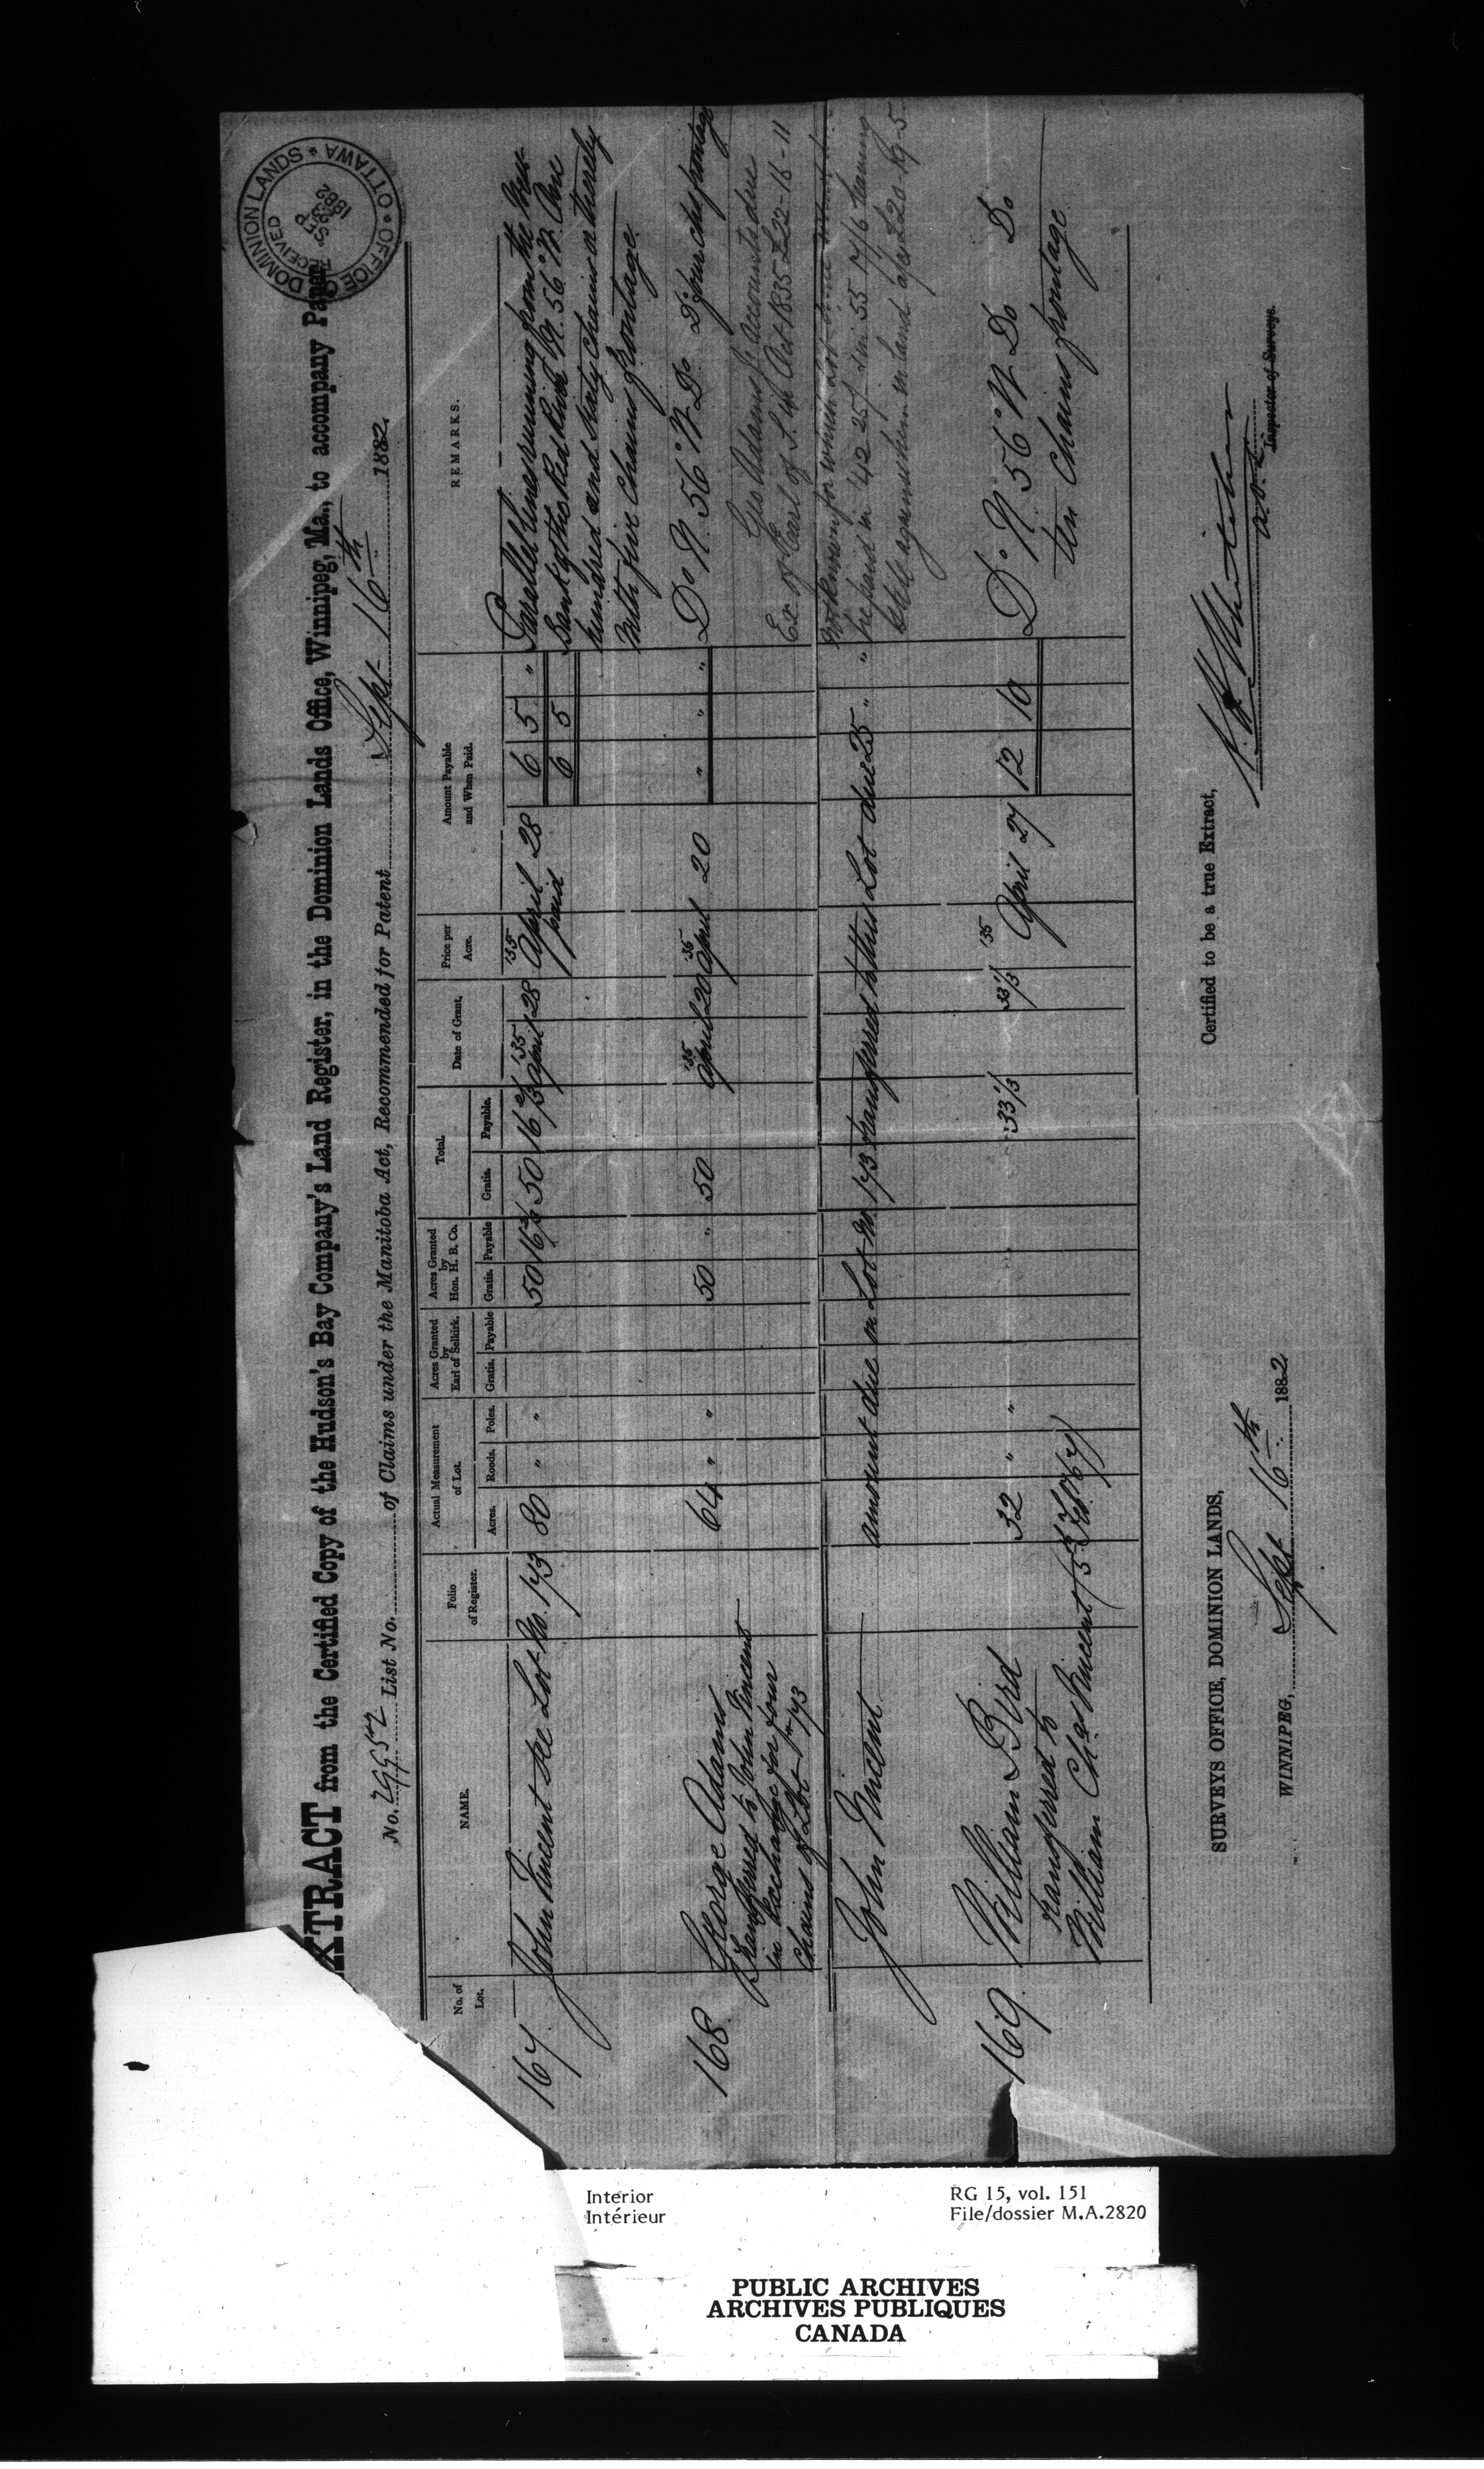 DOMINION LANDS * OFFICE * OTTAWA
RECEIVED
SEP
1882
EXTRACT from the Certified Copy of the Hudson's Bay Company's Land Register, in the Dominion Lands Office, Winnipeg, Ma., to accompany Paper
No. List No. of Claims under the Manitoba Act, Recommended for Patent Sept 16th 1882
No. of Lot. NAME. Folio of Register. Actual Measurement of Lot. Acres Granted by Earl of Selkirk. Acres Granted by Hon. H. B. Co. Total. Date of Grant. Price per Acre. Amount Payable and When Paid. REMARKS.
Acres. Roods. Poles. Gratis. Payable Gratis. Payable Gratis. Payable.
167. John Vincent see Lot No. 173 80 " " 50 16 2/3 50 16 2/3 '35 April 28 '35 April 28 6 5 " Parallel lines running from the West
paid 6 5 Bank of the Red River N. 56° W. One
hundred and Sixty Chains or thereby
with five Chains frontage
168. George Adams 64 " " 50 " 50 '35 April 20 '35 April 20 " " " Do N. 56° W Do Do four chs frontage
Transferred to John Vincent
in Exchange for four
chains of Lot No 173
Geo Adams Jr accounts due
Ex. of Earl of S. in Oct 1835 £22-16-11
John Vincent amount due on Lot No. 173 transferred to this Lot due 25 " "
for which Lot
he paid in '42 25/ & in '55 17/6 leaving
still against him in land a/c £20-19-5
169. William Bird 32 " " 33 1/3 33 1/3 '35 April 27 12 10 Do N. 56° W Do Do
transferred to
William Chas Vincent (5th Feb. '67)
ten Chains frontage
SURVEYS OFFICE, DOMINION LANDS,
WINNIPEG, Sept 16th 1882
Certified to be a true Extract,
Inspector of Surveys.
Interior
Intérieur
RG 15, vol. 151
File/dossier M.A.2820
PUBLIC ARCHIVES
ARCHIVES PUBLIQUES
CANADA